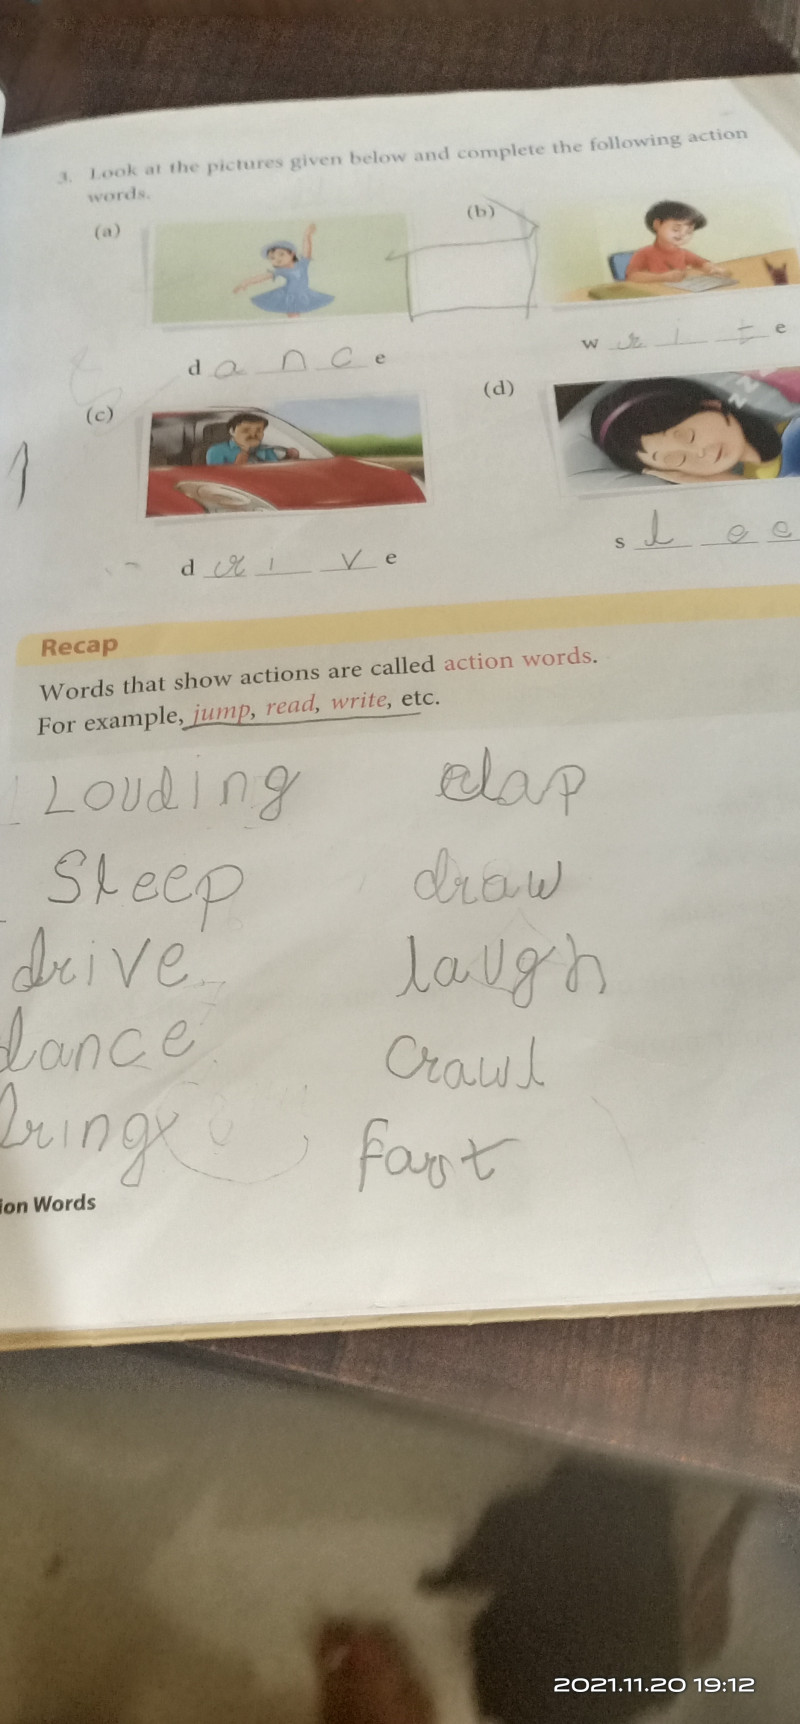 3. Look at the pictures given below and complete the following action
words.
(a)
(b)
d a n c e
w r i t e
(c)
(d)
d r i v e
s l e e
Recap
Words that show actions are called action words.
For example, jump, read, write, etc.
Louding clap
Sleep draw
drive laugh
dance crawl
bring fart
ion Words
2021.11.20 19:12